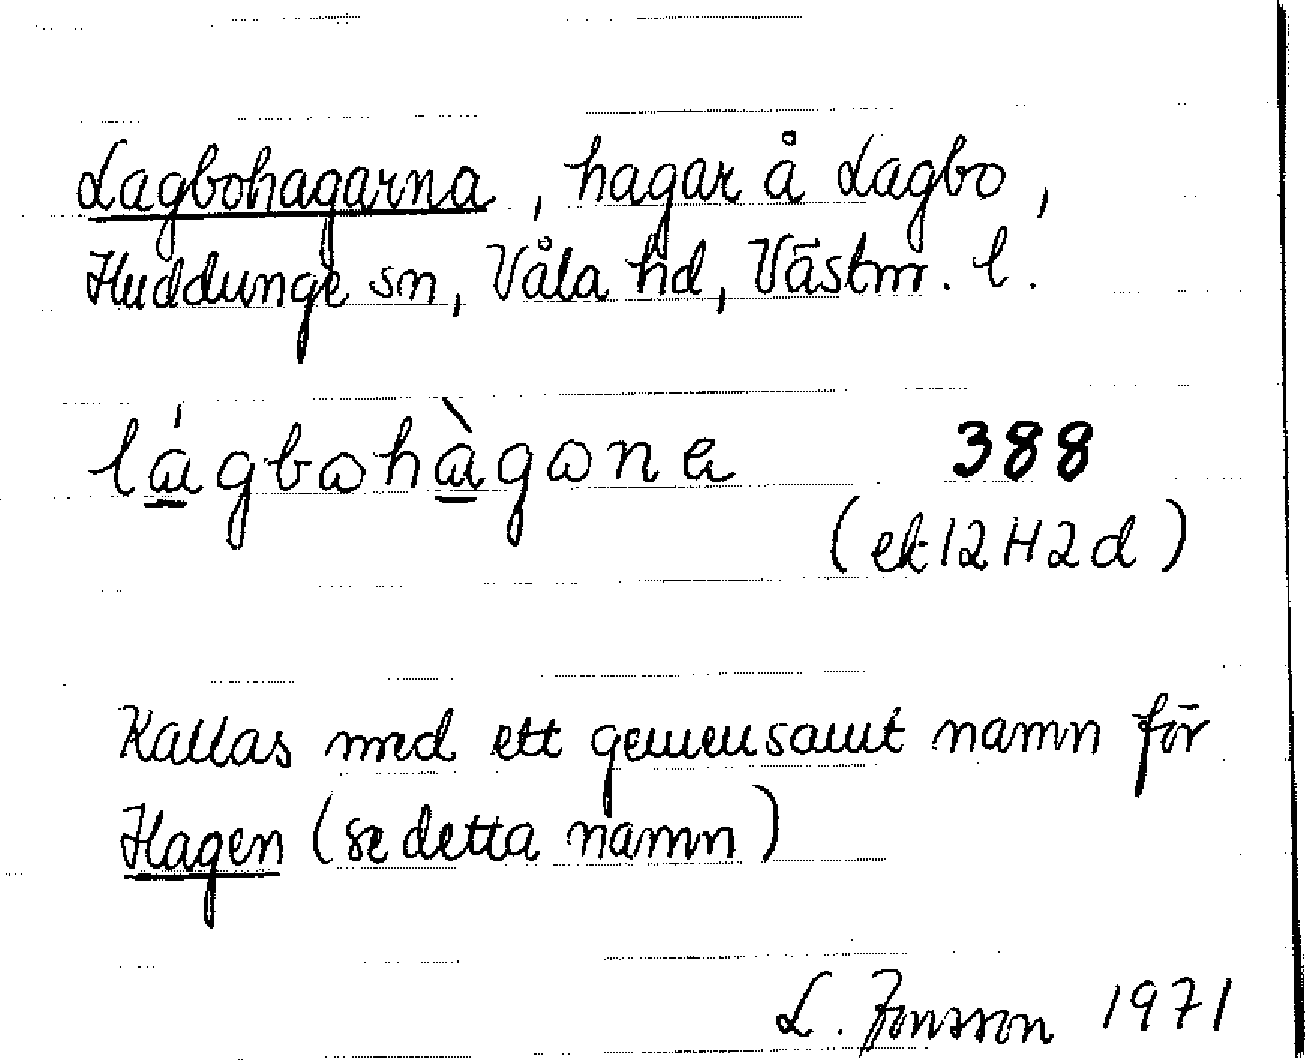 Lagbohagarna, hagar å Lagbo,
Huddunge sn, Våla hd, Västm. l.
lágbɷhàgɷna 388
(ek 12H2d)
Kallas med ett gemensamt namn för
Hagen (se detta namn)
L. Jonsson 1971